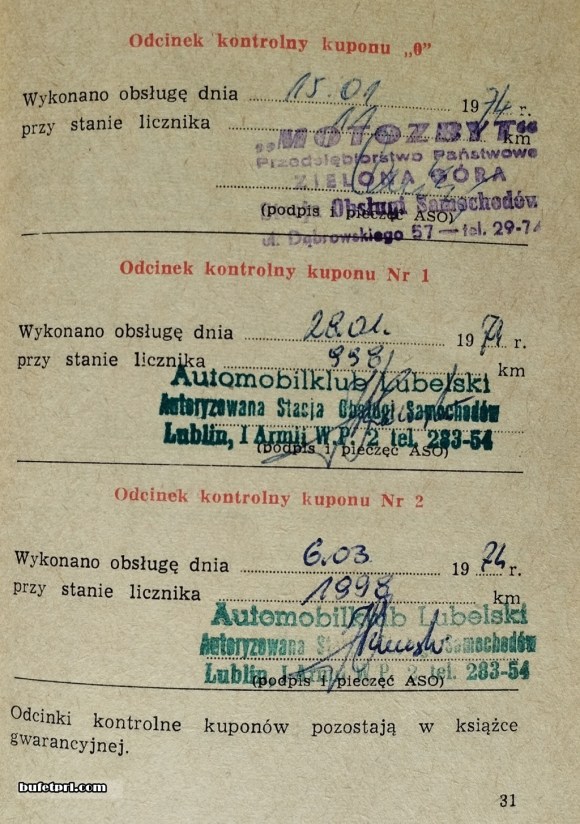 Odcinek kontrolny kuponu „0"
Wykonano obsługę dnia 15.01 1974 r.
przy stanie licznika 11 km
„MOTOZBYT"
Przedsiębiorstwo Państwowe
ZIELONA GÓRA
Obsługi Samochodów
(podpis i pieczęć ASO)
ul. Dąbrowskiego 57 — tel. 29-74
Odcinek kontrolny kuponu Nr 1
Wykonano obsługę dnia 28.01. 1974 r.
przy stanie licznika 998 km
Automobilklub Lubelski
Autoryzowana Stacja Obsługi Samochodów
Lublin, I Armii W.P. 2 tel. 283-54
(podpis i pieczęć ASO)
Odcinek kontrolny kuponu Nr 2
Wykonano obsługę dnia 6.03 1974 r.
przy stanie licznika 1998 km
Automobilklub Lubelski
Autoryzowana Samochodów
Lublin, I Armii W.P. 2 tel. 283-54
(podpis i pieczęć ASO)
Odcinki kontrolne kuponów pozostają w książce
gwarancyjnej.
bufetprl.com
31